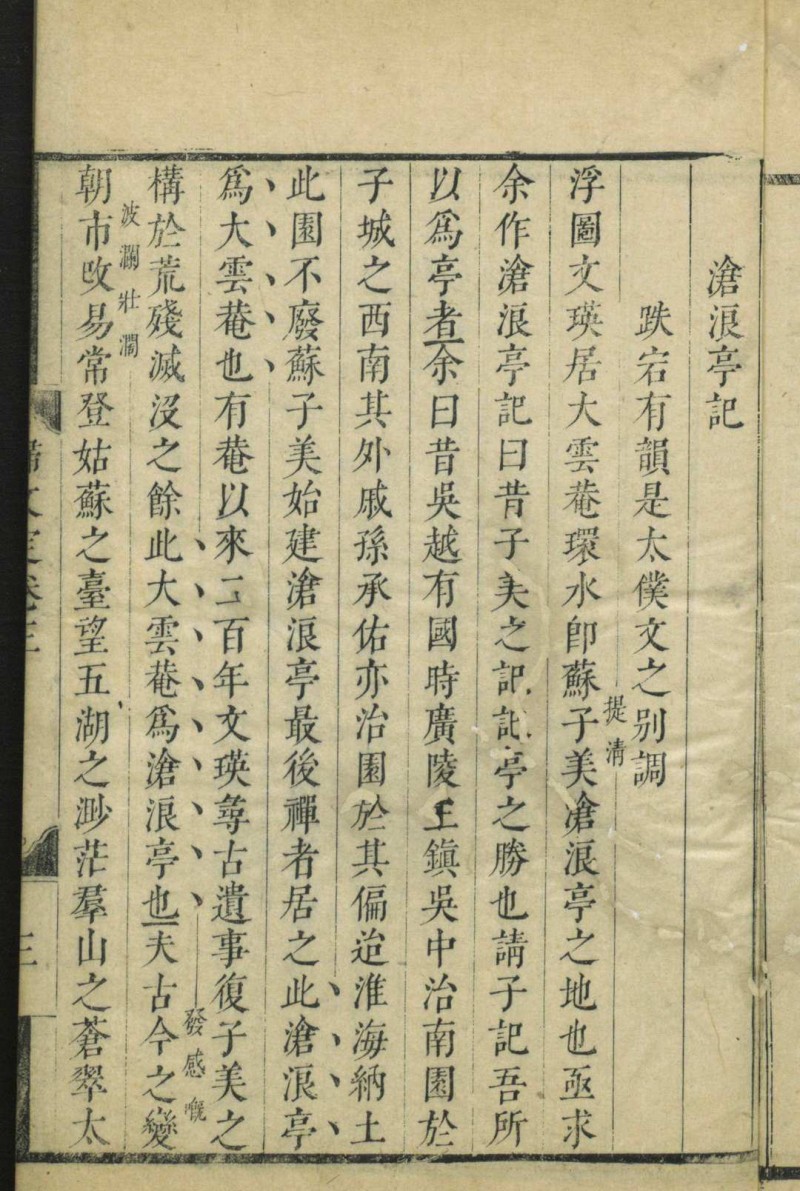 滄浪亭記
跌宕有韻是太僕文之別調
浮圖文瑛居大雲菴環水卽蘇子美滄浪亭之地也亟求
提清
余作滄浪亭記曰昔子美之記記亭之勝也請子記吾所
以爲亭者余曰昔吳越有國時廣陵王鎮吳中治南園於
子城之西南其外戚孫承佑亦治園於其偏迨淮海納土
此園不廢蘇子美始建滄浪亭最後禪者居之此滄浪亭
爲大雲菴也有菴以來二百年文瑛尋古遺事復子美之
發感慨
構於荒殘滅沒之餘此大雲菴爲滄浪亭也夫古今之變
波瀾壯濶
朝市改易常登姑蘇之臺望五湖之渺茫羣山之蒼翠太
歸文定卷三
三